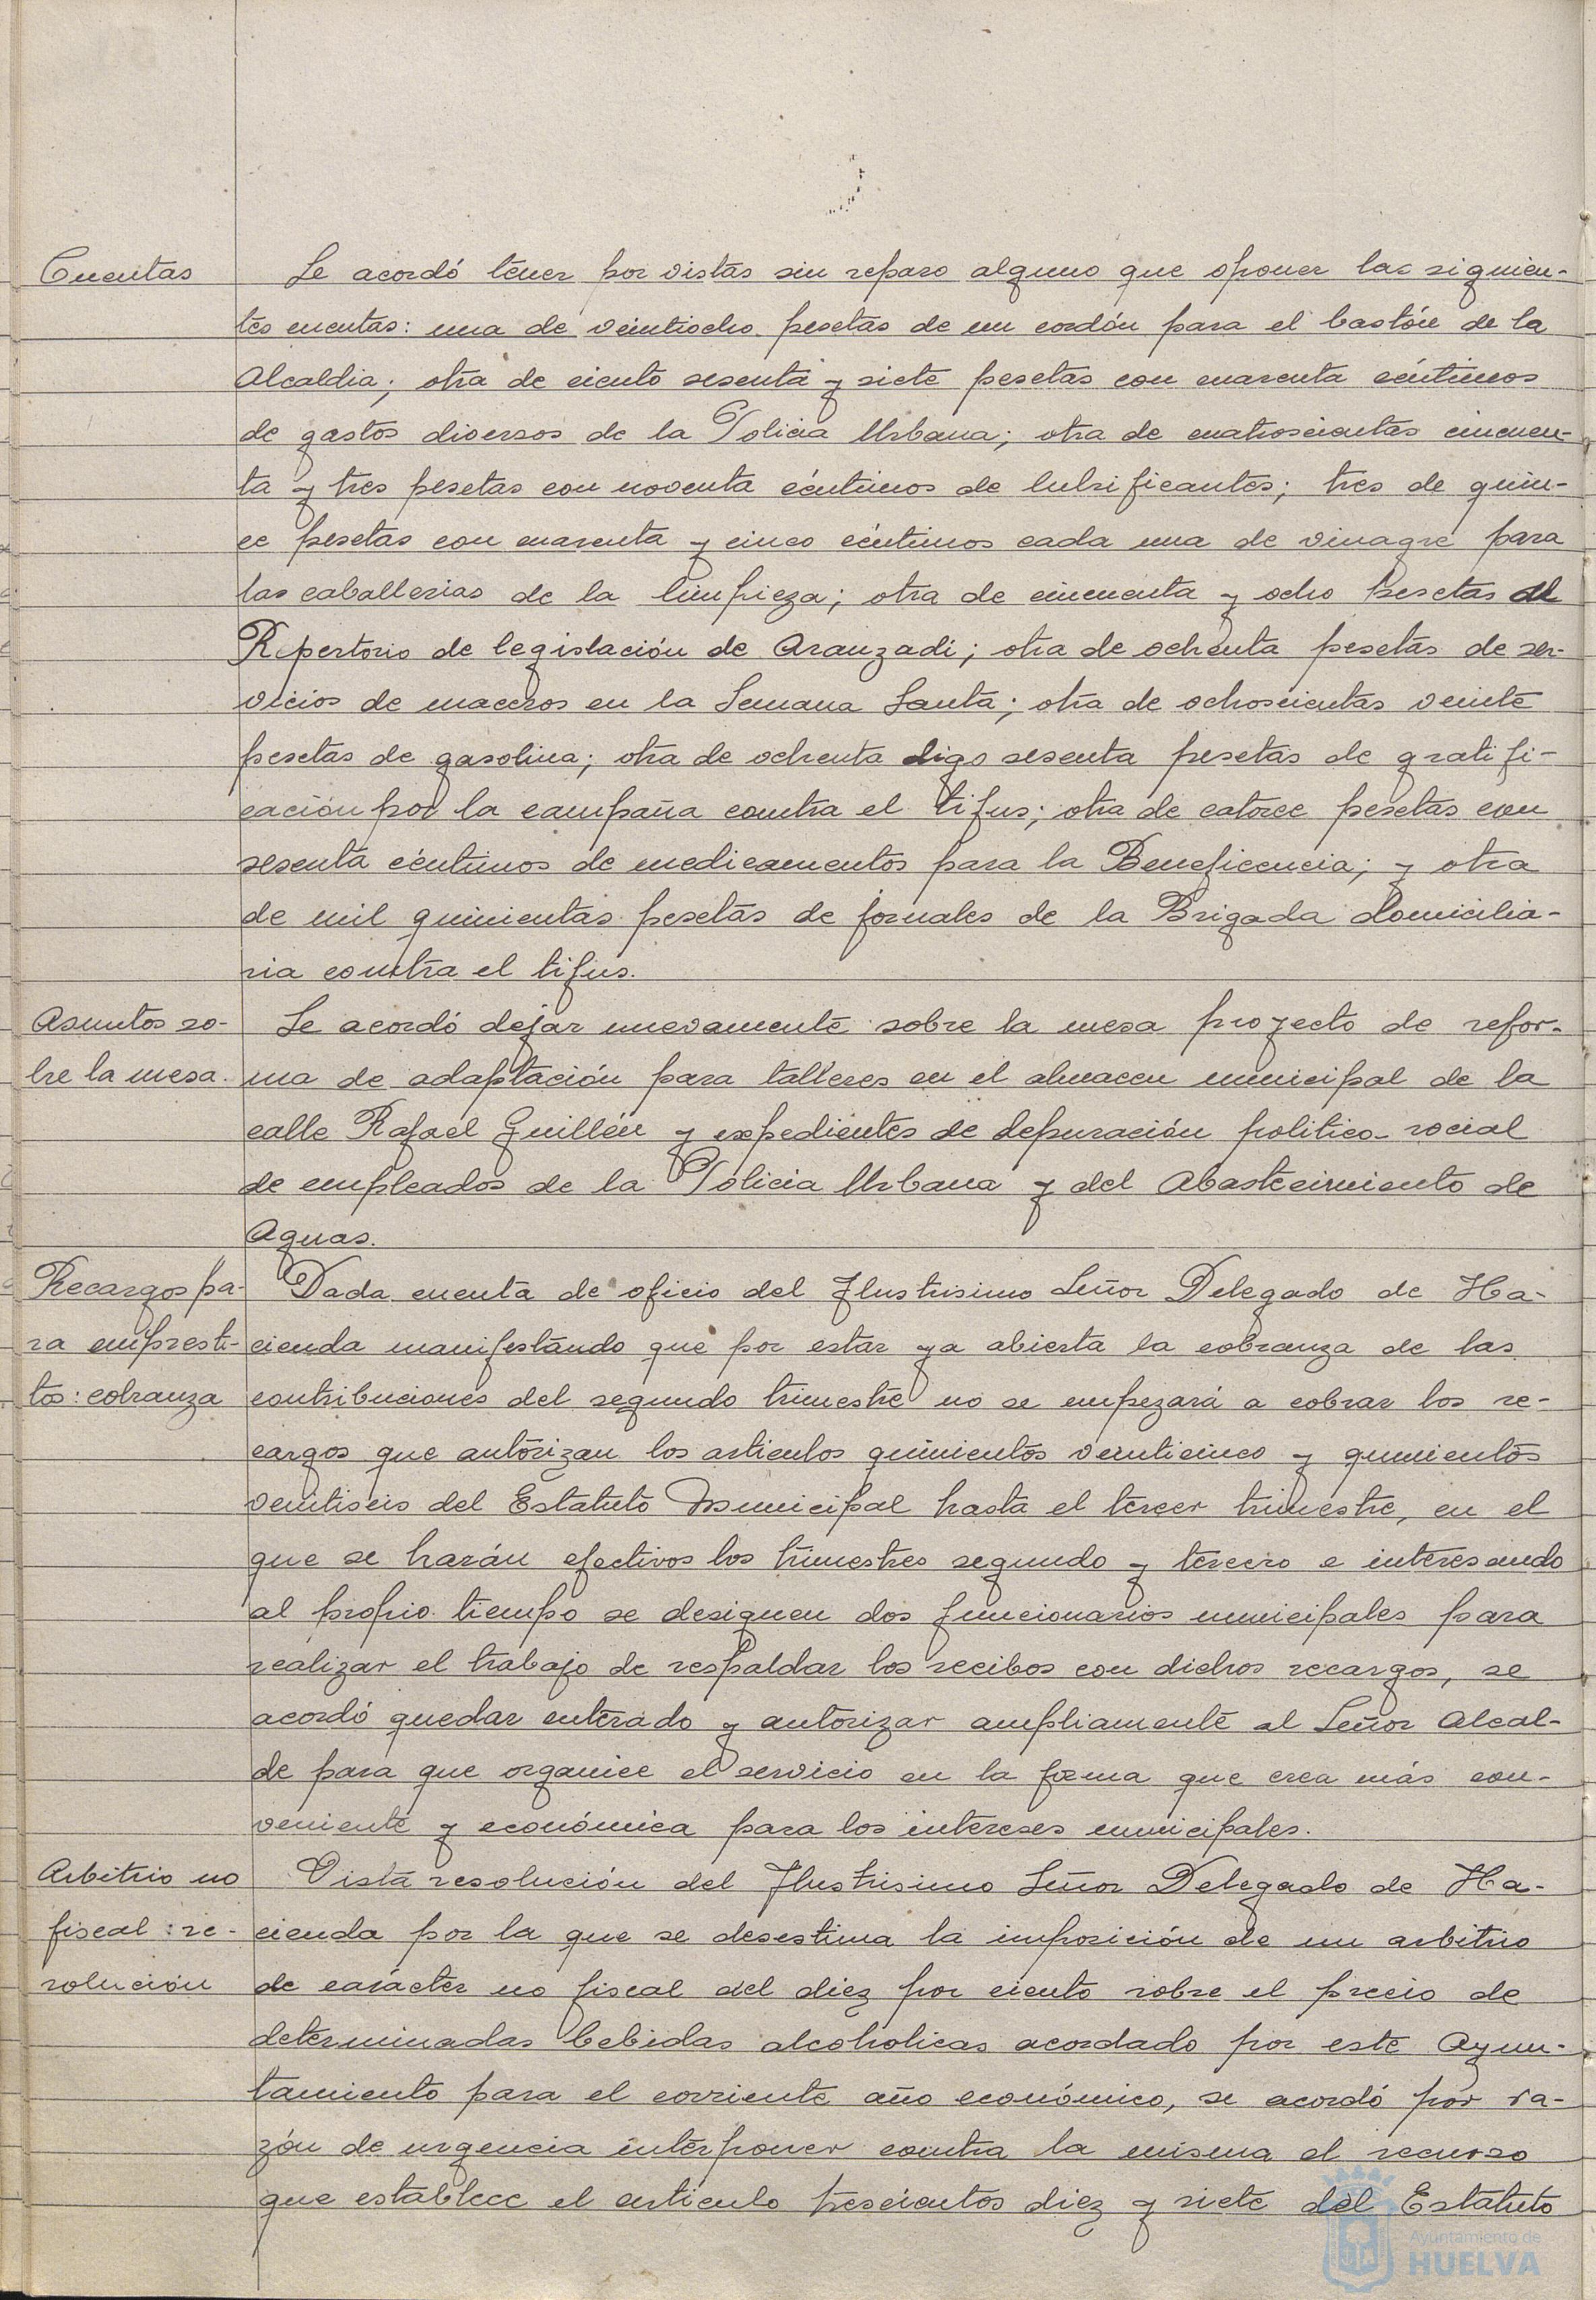 Cuentas
Se acordó tener por vistas sin reparo alguno que oponer las siguien-
tes cuentas: una de veintiocho pesetas de un cordón para el bastón de la
Alcaldia; otra de ciento sesenta y siete pesetas con cuarenta céntimos
de gastos diversos de la Policia Urbana; otra de cuatroscientas cincuen-
ta y tres pesetas con noventa céntimos de lubrificantes; tres de quin-
ce pesetas con cuarenta y cinco céntimos cada una de vinagre para
las caballerias de la limpieza; otra de cincuenta y ocho pesetas del
Repertorio de legislación de Aranzadi; otra de ochenta pesetas de ser-
vicios de maceros en la Semana Santa; otra de ochoscientas veinte
pesetas de gasolina; otra de ochenta digo sesenta pesetas de gratifi-
cación por la campaña contra el tifus; otra de catorce pesetas con
sesenta céntimos de medicamentos para la Beneficencia; y otra
de mil quinientas pesetas de jornales de la Brigada domicilia-
ria contra el tifus.
Asuntos so-
bre la mesa.
Se acordó dejar nuevamente sobre la mesa proyecto de refor-
ma de adaptación para talleres en el almacen municipal de la
calle Rafael Guillén y expedientes de depuración politico-social
de empleados de la Policia Urbana y del Abastecimiento de
Aguas.
Recargos pa-
ra empresti-
tos: cobranza
Dada cuenta de oficio del Ilustrisimo Señor Delegado de Ha-
cienda manifestando que por estar ya abierta la cobranza de las
contribuciones del segundo trimestre no se empezará a cobrar los re-
cargos que autorizan los articulos quinientos veinticinco y quinientos
veintiseis del Estatuto Municipal hasta el tercer trimestre, en el
que se harán efectivos los trimestres segundo y tercero e interesando
al propio tiempo se designen dos funcionarios municipales para
realizar el trabajo de respaldar los recibos con dichos recargos, se
acordó quedar enterado y autorizar ampliamente al Señor Alcal-
de para que organice el servicio en la forma que crea más con-
veniente y económica para los intereses municipales.
Arbitrio no
fiscal: re-
solución
Vista resolución del Ilustrisimo Señor Delegado de Ha-
cienda por la que se desestima la imposición de un arbitrio
de carácter no fiscal del diez por ciento sobre el precio de
determinadas bebidas alcoholicas acordado por este Ayun-
tamiento para el corriente año económico, se acordó por ra-
zón de urgencia interponer contra la misma el recurso
que establece el articulo trescientos diez y siete del Estatuto
Ayuntamiento de
HUELVA